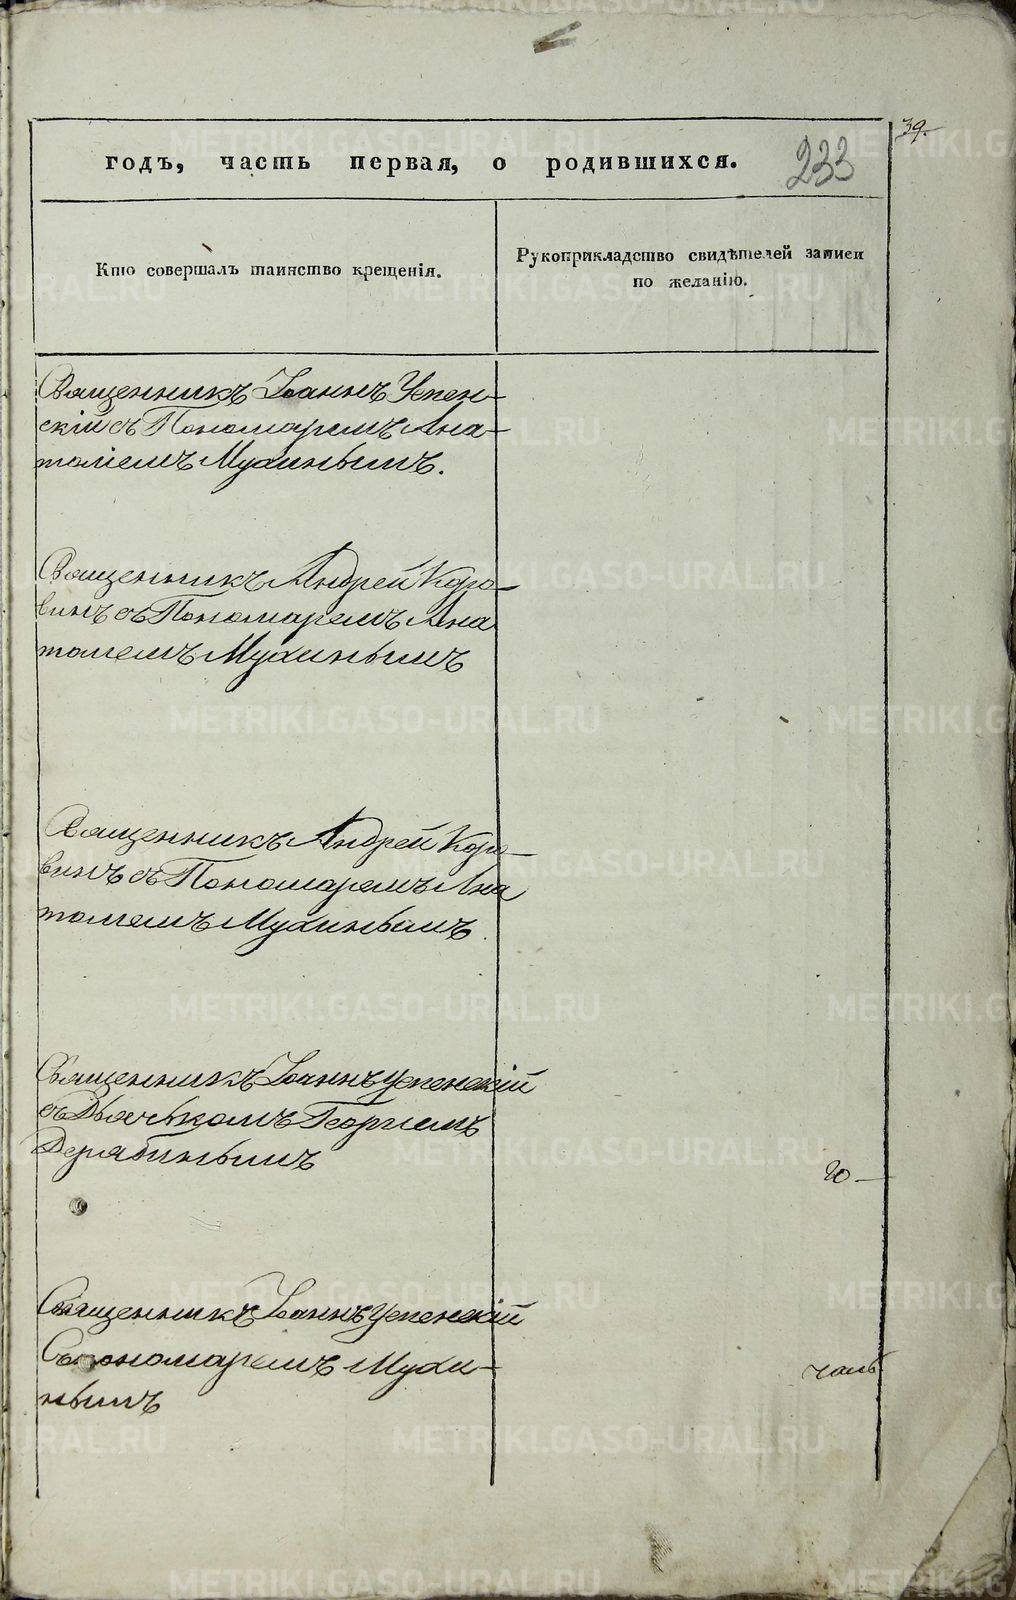 39.
годъ, часть первая, о родившихся. 233
Кто совершалъ таинство крещенія.
Рукоприкладство свидѣтелей записи
по желанію.
Священникъ Іоаннъ Успен-
скій съ Пономаремъ Ана-
толіемъ Мухинымъ.
Священникъ Андрей Коро-
винъ съ Пономаремъ Ана
толіемъ Мухинымъ
Священникъ Андрей Коро-
винъ съ Пономаремъ Ана
толіемъ Мухинымъ.
Священникъ Іоаннъ Успенскій
съ Дьячькомъ Георгіемъ
Дерябинымъ
Священникъ Іоаннъ Успенскій
Съ пономаремъ Мухи-
нымъ
METRIKI.GASO-URAL.RU